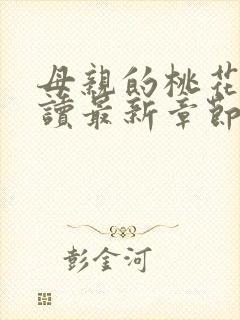 母親的桃花
讀最新章節
彭金河